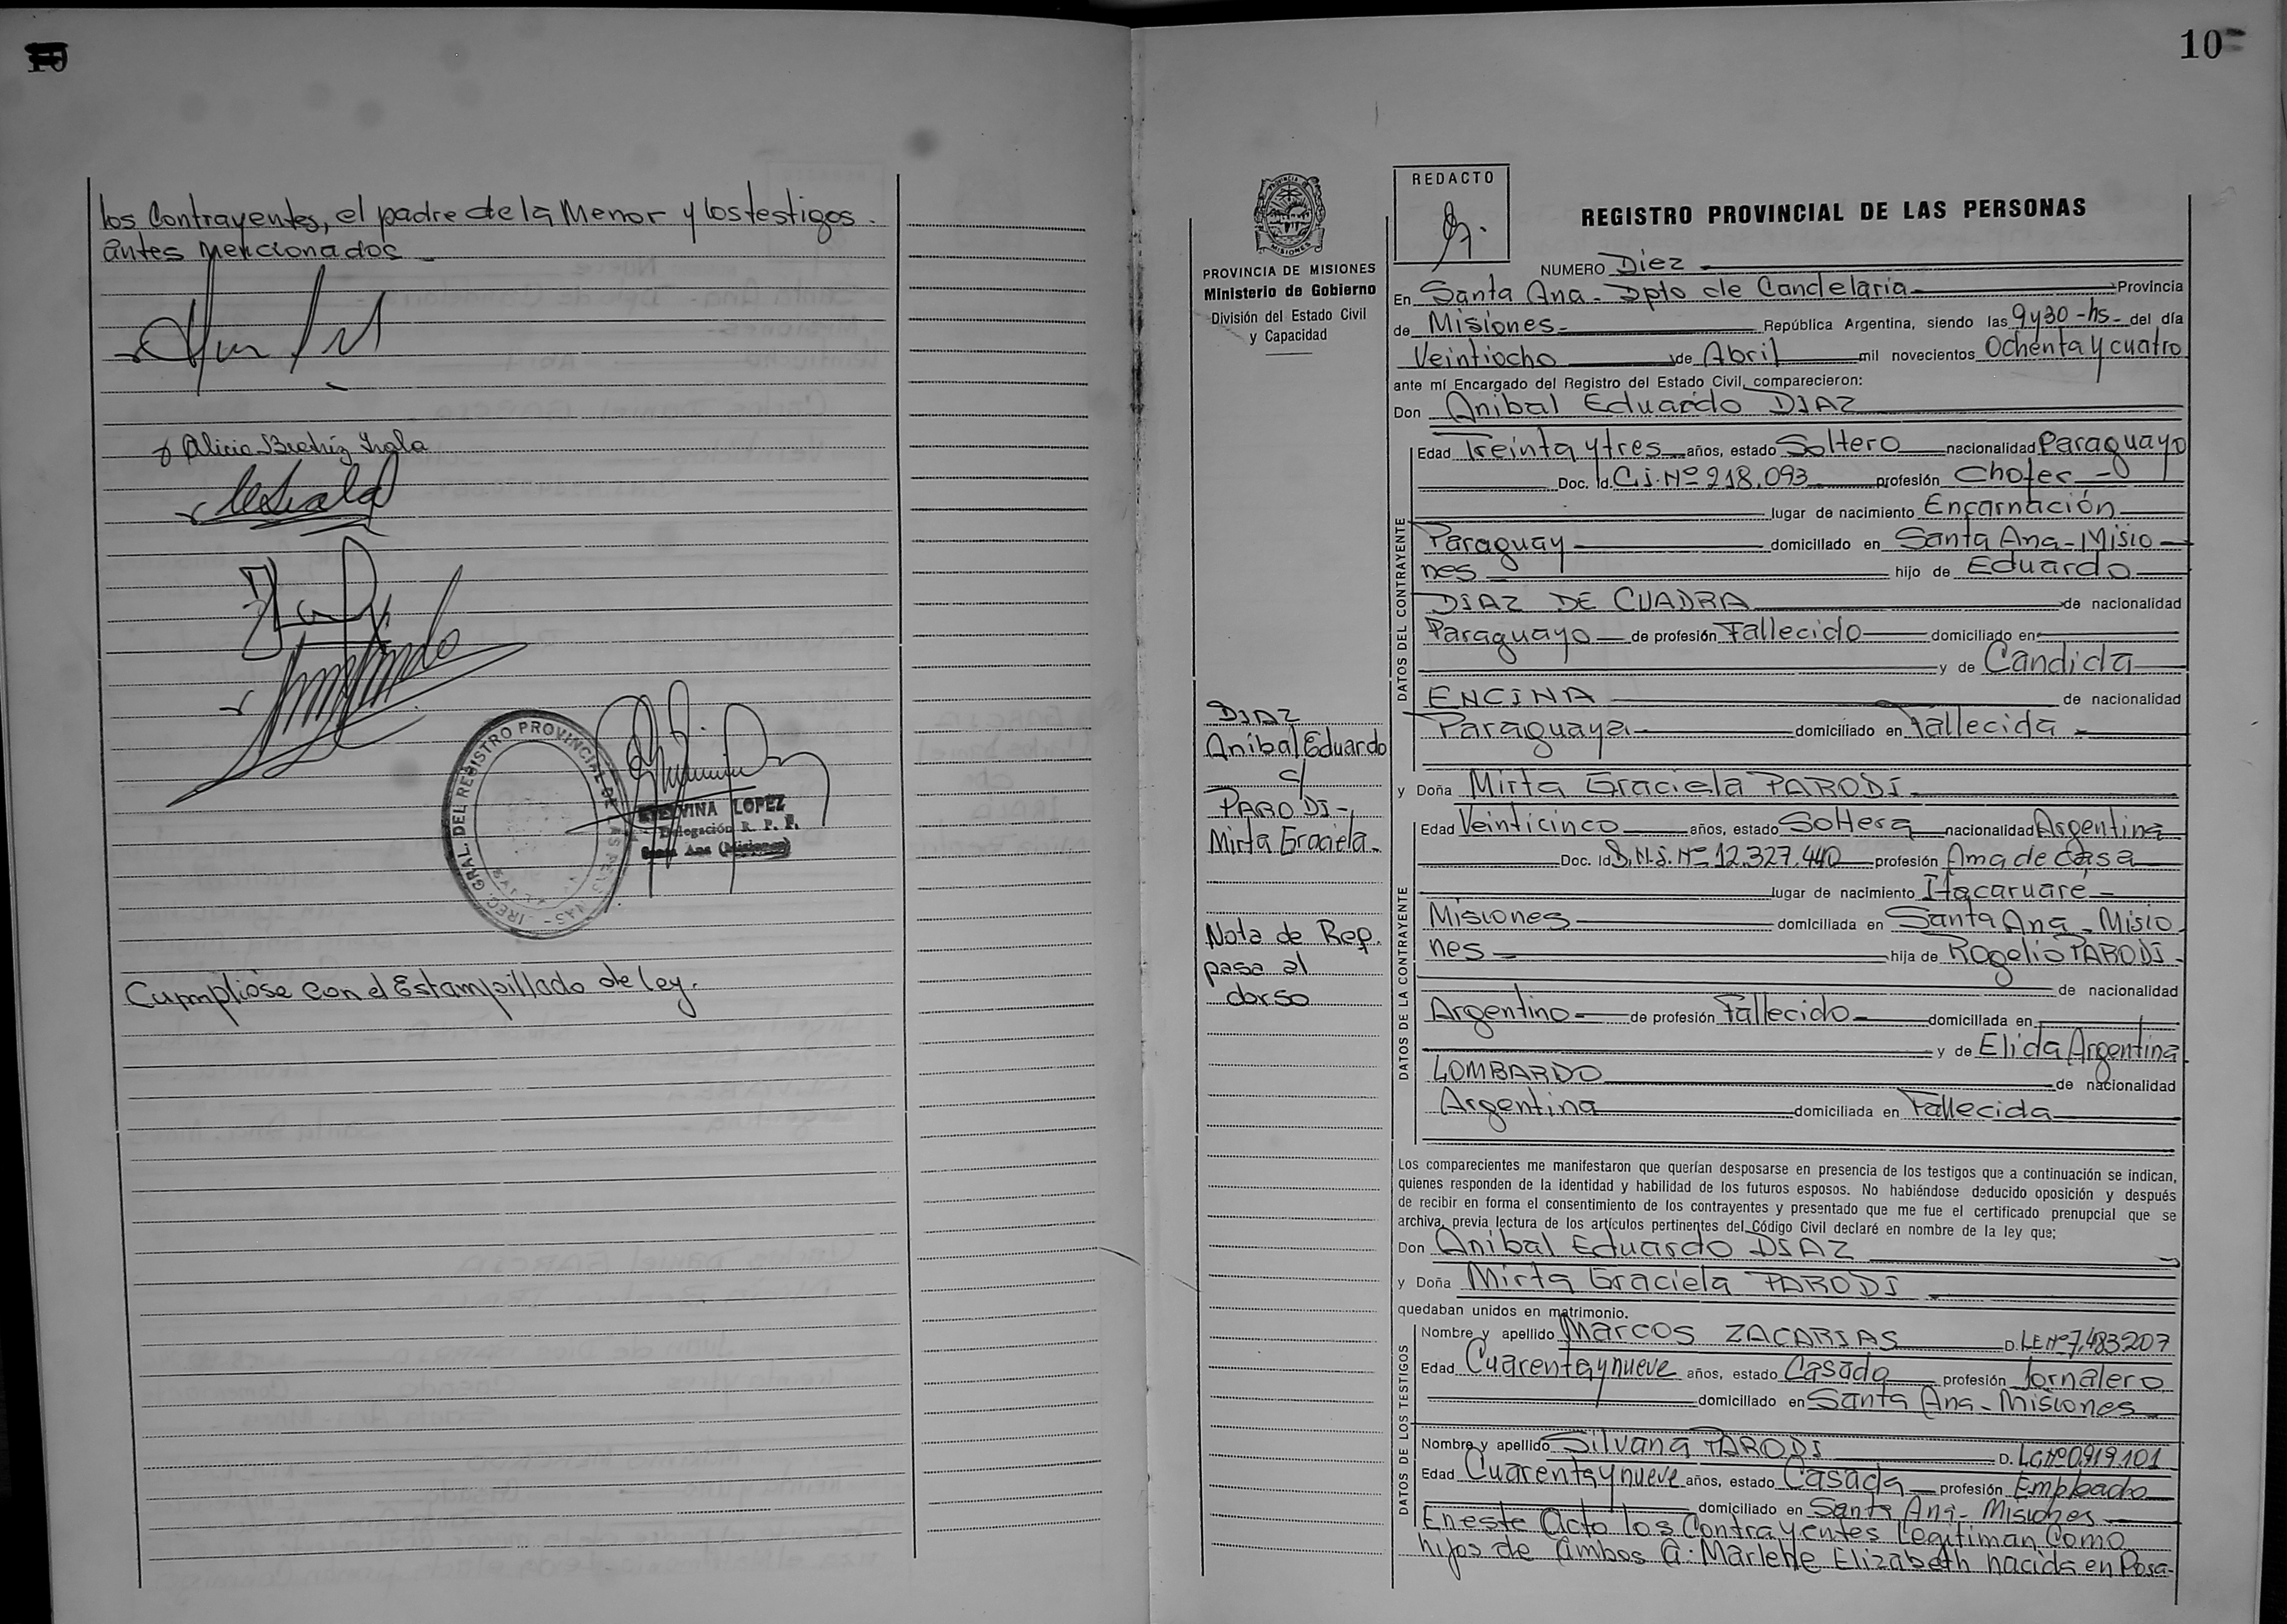 10
los Contrayentes, el padre de la Menor y los testigos.
antes mencionados
Alicia Beatriz Irala
REG. GRAL. DEL REGISTRO PROVINCIAL DE LAS PERSONAS
ETELVINA LOPEZ
Delegación R. P. P.
Santa Ana (Misiones)
Cumplióse con el Estampillado de ley.
10
PROVINCIA DE MISIONES
Ministerio de Gobierno
División del Estado Civil
y Capacidad
DIAZ
Anibal Eduardo
c/
PARODI-,
Mirta Graciela-
Nota de Ref.
pasa al
dorso
REDACTO
REGISTRO PROVINCIAL DE LAS PERSONAS
NUMERO Diez
En Santa Ana - Dpto de Candelaria Provincia
de Misiones República Argentina, siendo las 9 y 30 -hs- del día
Veintiocho de Abril mil novecientos Ochenta y cuatro
ante mí Encargado del Registro del Estado Civil, comparecieron:
Don Anibal Eduardo DIAZ
DATOS DEL CONTRAYENTE
Edad Treinta y tres años, estado Soltero nacionalidad Paraguayo
Doc. Id. C.I. Nº 218.093 profesión Chofer
lugar de nacimiento Encarnación
Paraguay domiciliado en Santa Ana - Misio
nes hijo de Eduardo
DIAZ DE CUADRA de nacionalidad
Paraguayo de profesión Fallecido domiciliado en
y de Candida
ENCINA de nacionalidad
Paraguaya domiciliado en Fallecida
y Doña Mirta Graciela PARODI
DATOS DE LA CONTRAYENTE
Edad Veinticinco años, estado Soltera nacionalidad Argentina
Doc. Id D.N.I. Nº 12.327.440 profesión Ama de casa
lugar de nacimiento Itacaruaré
Misiones domiciliada en Santa Ana - Misio
nes hija de Rogelio PARODI
de nacionalidad
Argentino de profesión Fallecido domiciliada en
y de Elida Argentina
LOMBARDO de nacionalidad
Argentina domiciliada en Fallecida
Los comparecientes me manifestaron que querían desposarse en presencia de los testigos que a continuación se indican,
quienes responden de la identidad y habilidad de los futuros esposos. No habiéndose deducido oposición y después
de recibir en forma el consentimiento de los contrayentes y presentado que me fue el certificado prenupcial que se
archiva, previa lectura de los artículos pertinentes del Código Civil declaré en nombre de la ley que;
Don Anibal Eduardo DIAZ
y Doña Mirta Graciela PARODI
quedaban unidos en matrimonio.
DATOS DE LOS TESTIGOS
Nombre y apellido Marcos ZACARIAS D. LE Nº 7.483207
Edad Cuarenta y nueve años, estado Casado profesión Jornalero
domiciliado en Santa Ana - Misiones
Nombre y apellido Silvana PARODI D. LC Nº 0.919.101
Edad Cuarenta y nueve años, estado Casada profesión Empleado
domiciliado en Santa Ana - Misiones
En este Acto los Contrayentes Legitiman Como
hijos de ambos a: Marlene Elizabeth nacida en Posa-